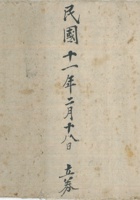 民國十一年二月十八日 立券